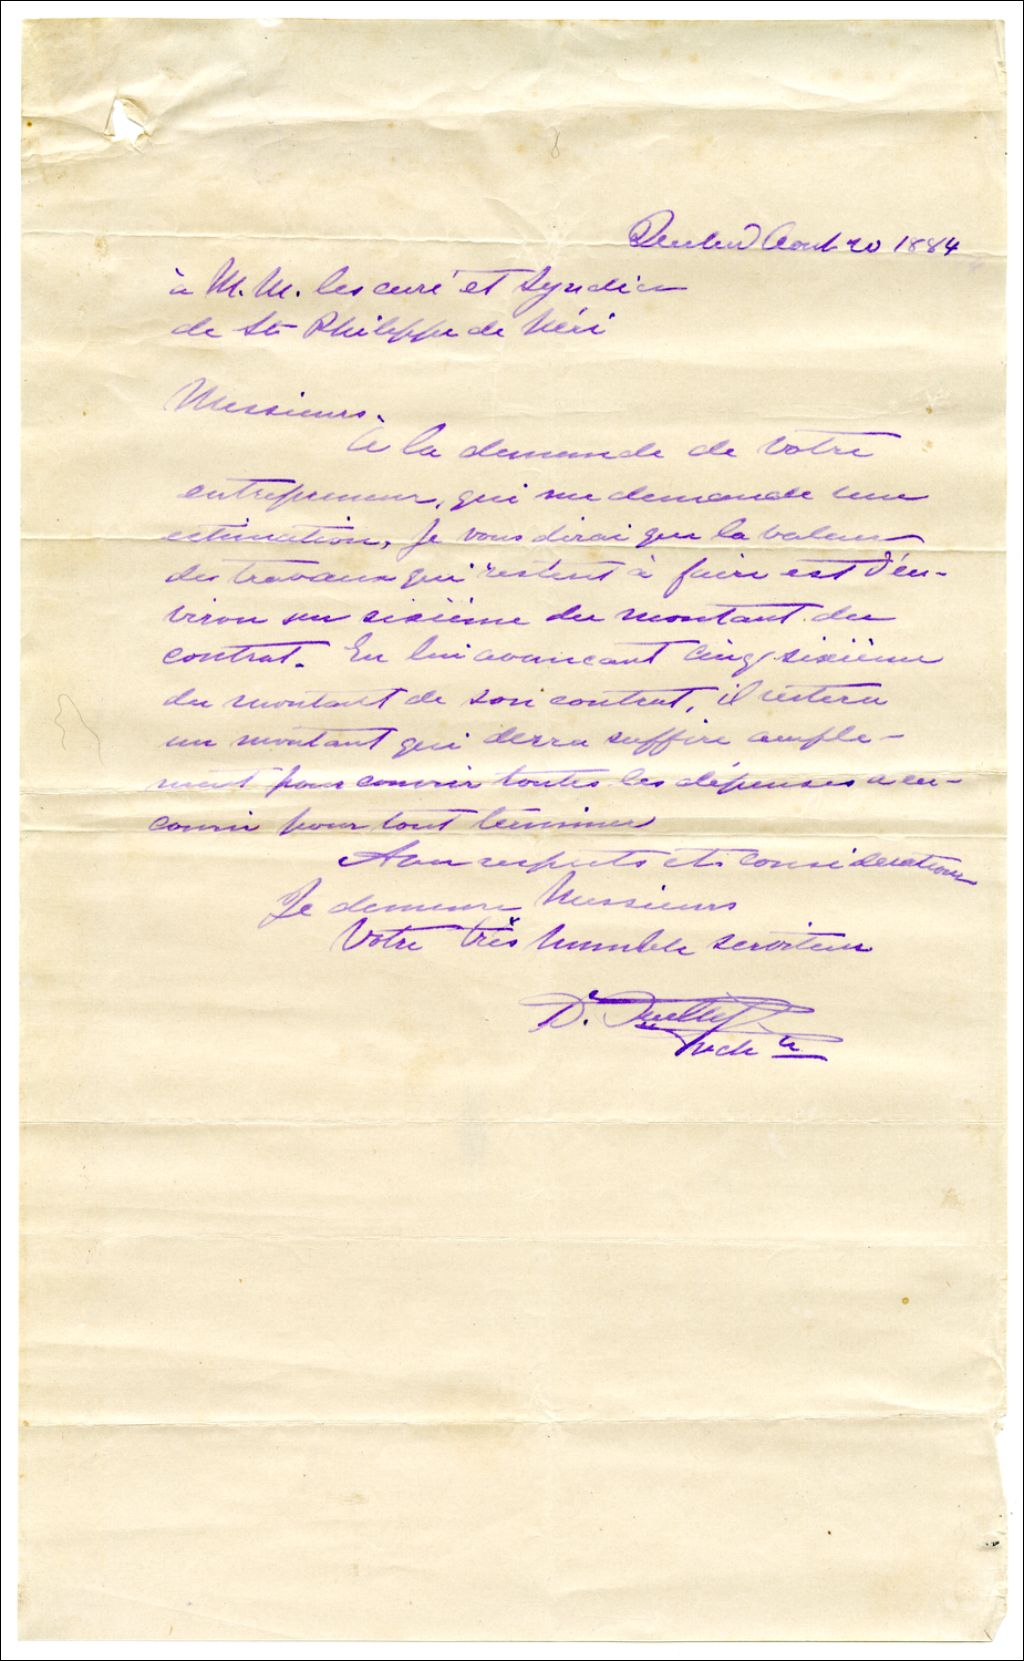 Québec Aout 20 1884
à M.M. les curé et Syndics
de St Philippe de Néri
Messieurs.
à la demande de votre
entrepreneur, qui me demande une
estimation, Je vous dirai que la valeur
des travaux qui restent à faire est d'en-
viron un sixième du montant du
contrat. En lui avancant cinq sixième
du montant de son contrat, il restera
un montant qui devra suffire ample-
ment pour couvrir toutes les dépenses a en-
courir pour tout terminer
Avec respects et consideration
Je demeure Messieurs
Votre très humble serviteur
D. Ouellet
Archte